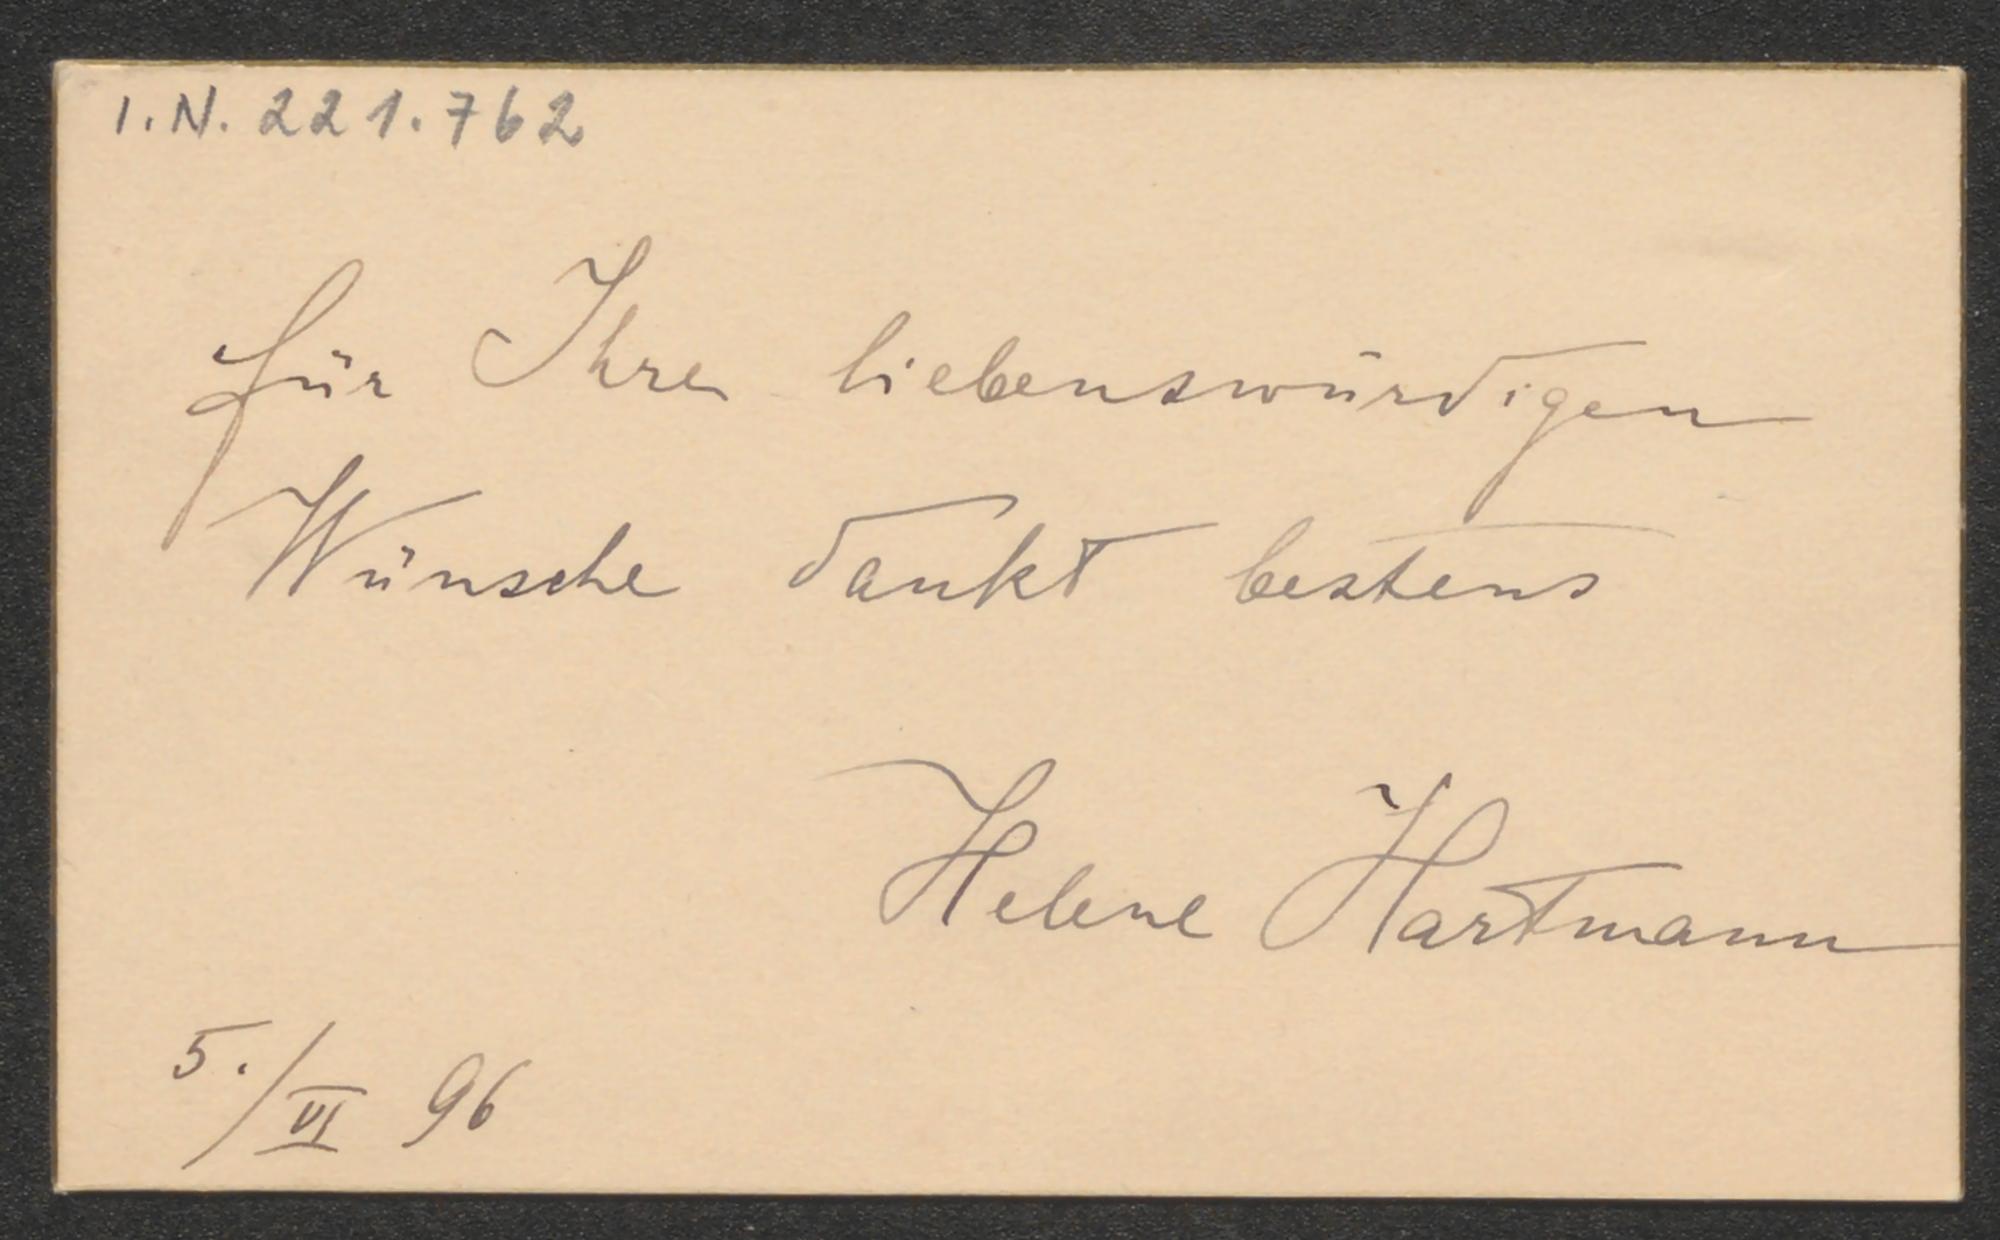 I.N. 221.762
für Ihre liebenswürdigen
Wünsche dankt bestens
Helene Hartmann
5./VI 96